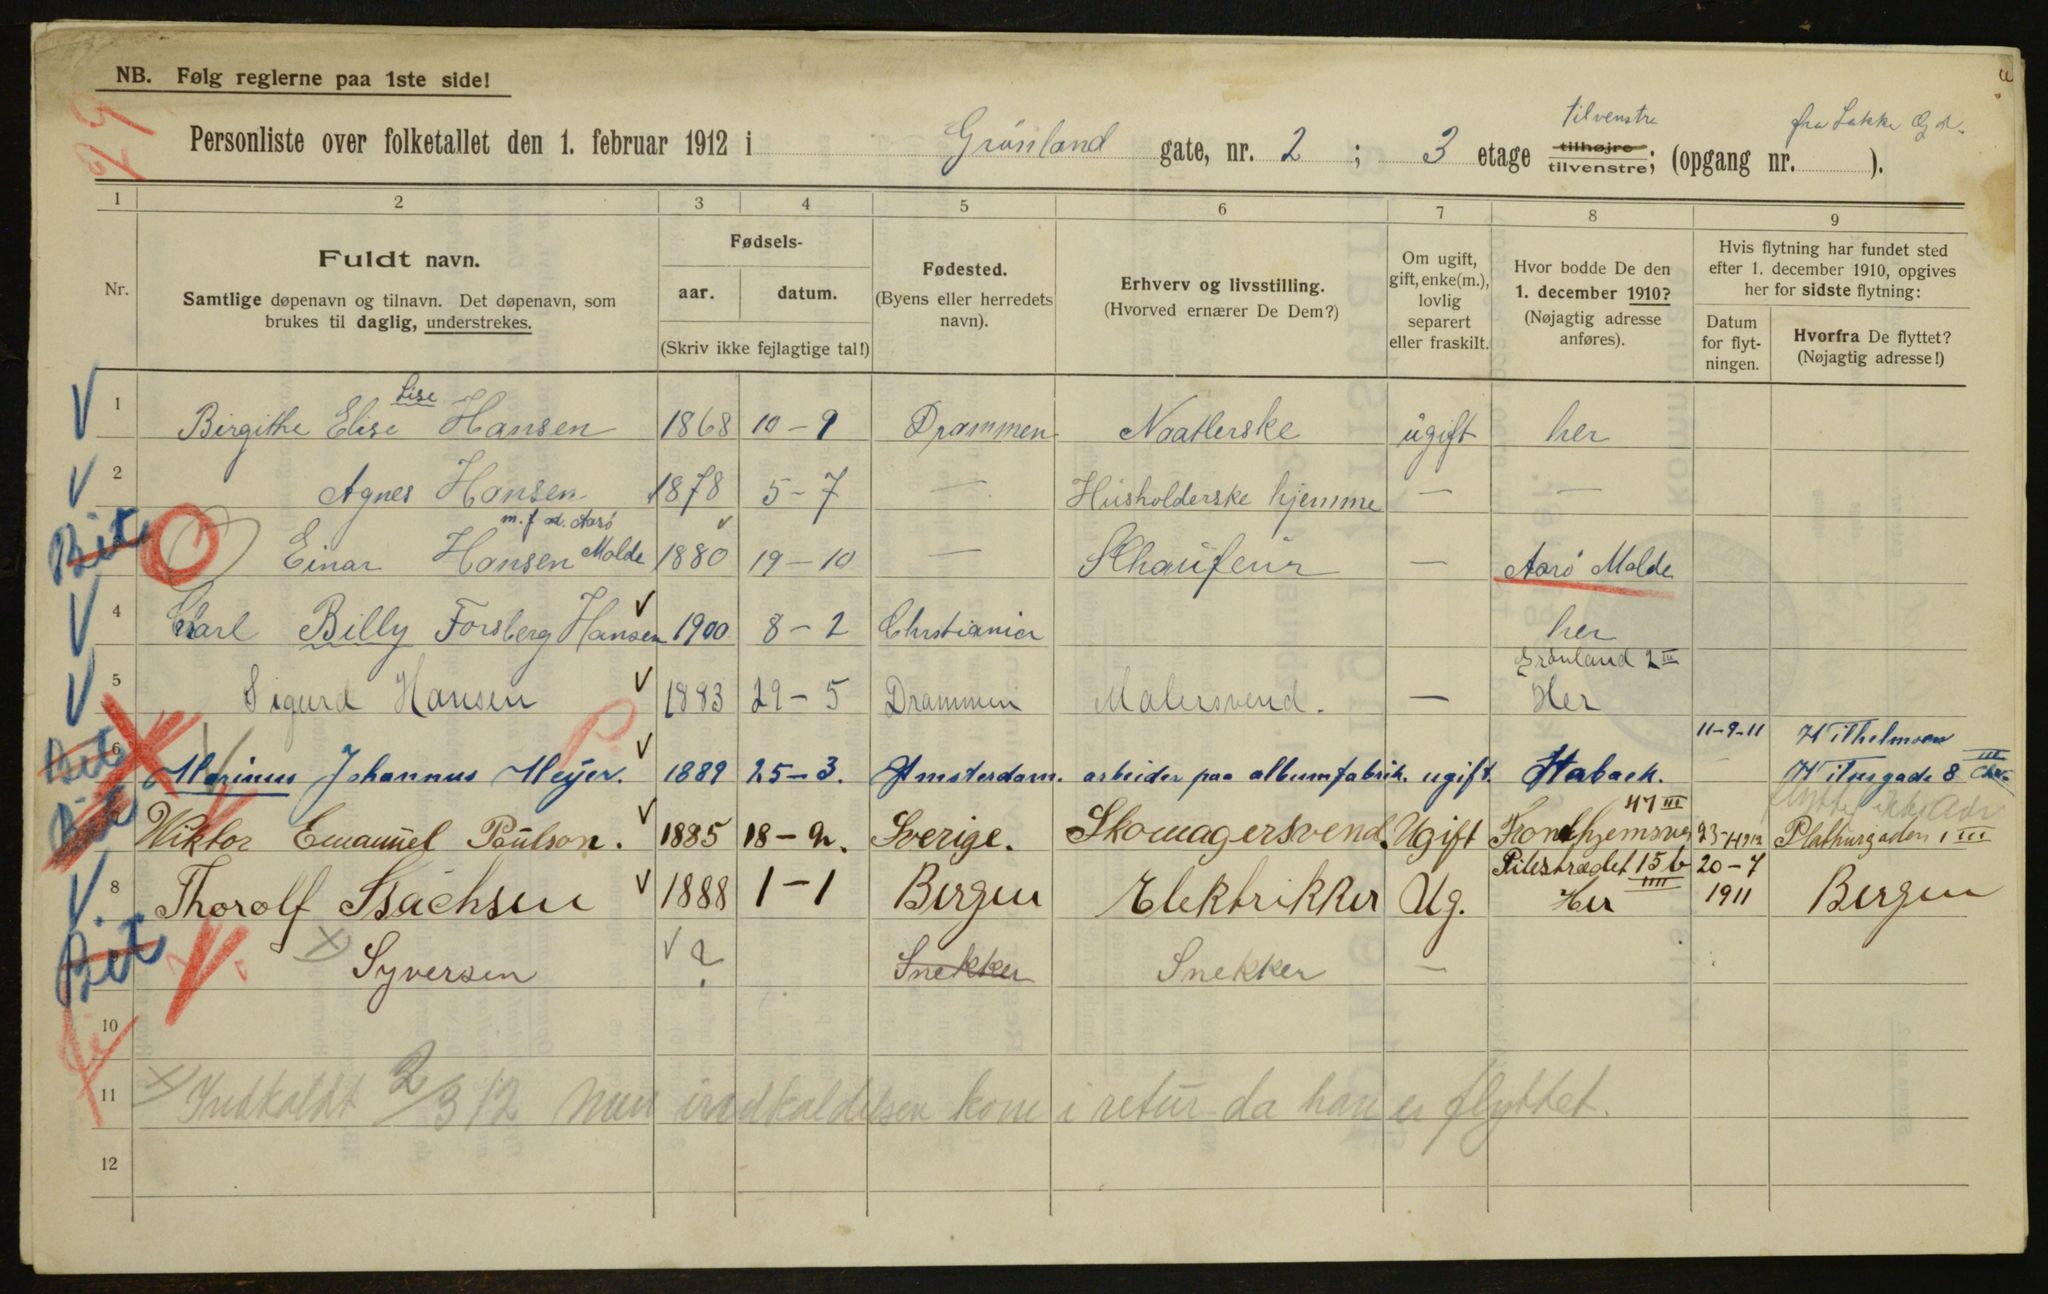 NB. Følg reglerne paa 1ste side!
29
tilvenstre
Personliste over folketallet den 1. februar 1912 i Grönland gate, nr. 2 ; 3 etage tilhøjre tilvenstre; (opgang nr. ).
1 2 3 4 5 6 7 8 9
Nr.
Fuldt navn.
Samtlige døpenavn og tilnavn. Det døpenavn, som
brukes til daglig, understrekes.
Fødsels-
aar. datum.
(Skriv ikke fejlagtige tal!)
Fødested.
(Byens eller herredets
navn).
Erhverv og livsstilling.
(Hvorved ernærer De Dem?)
Om ugift,
gift, enke(m.),
lovlig
separert
eller fraskilt.
Hvor bodde De den
1. december 1910?
(Nøjagtig adresse
anføres).
Hvis flytning har fundet sted
efter 1. december 1910, opgives
her for sidste flytning:
Datum
for flyt-
ningen.
Hvorfra De flyttet?
(Nøjagtig adresse!)
Lise
1 Birgithe Elise Hansen 1868 10-9 Drammen Naatlerske ugift her
2 Agnes Hansen 1878 5-7 — Husholderske hjemme — —
m. f ad. Aarö
Einar Hansen Molde 1880 19-10 — Chaufeur — Aarö Molde
4 Carl Billy Forsberg Hansen 1900 8-2 Christiania her
Grönland 2 III
5 Sigurd Hansen 1883 29-5 Drammen Malersvend. — Her
11-9-11 Wilhelmsen
6 Marinus Johannus Meyer. 1889 25-3. Amsterdam. arbeider paa albumfabrik. ugift. Stabaek. 8 III
47 III
Wiktor Emanuel Paulson. 1885 18-2. Sverige. Skomagersvend. Ugift Trondhjemsvg 23- 1912 1 III
Pilestrædet 15b 20-7
8 Thorolf Isachsen 1888 1-1 Bergen Elektrikker Ug. Her 1911 Bergen
x Syversen ? Snekker Snekker —
10
11 x Indkaldt 2/3 12 men indkaldelsen kom i retur da han er flyttet.
12